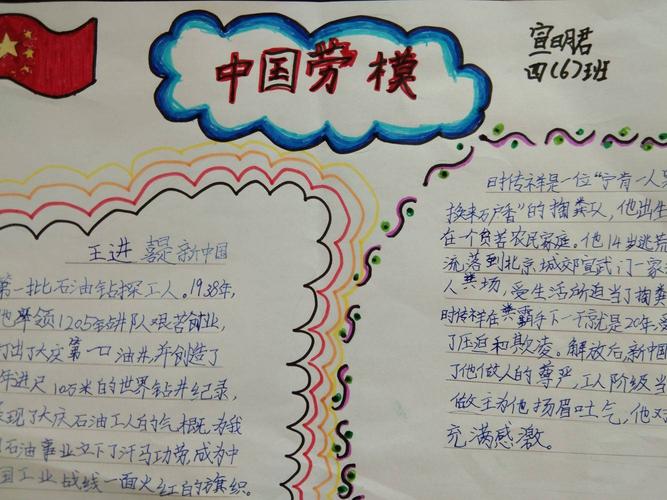 中国劳模
宣明君
四(6)班
王进喜是新中国
第一批石油钻探工人。1938年,
他率领1205钻井队艰苦创业,
打出了大庆第一口油井,并创造了
年进尺10万米的世界钻井纪录,
展现了大庆石油工人的气概,为我
国石油事业立下了汗马功劳,成为中
国工业战线一面火红的旗织。
时传祥是一位“宁肯一人
换来万户香”的掏粪工人,他出生
在一个贫苦农民家庭。他14岁逃荒
流落到北京城郊宣武门一家
人粪场,受生活所迫当了掏粪
时传祥在粪霸手下一干就是20年,受
了压迫和欺凌。解放后,新中国
了他做人的尊严,工人阶级当
做主为他扬眉吐气,他对
充满感激。